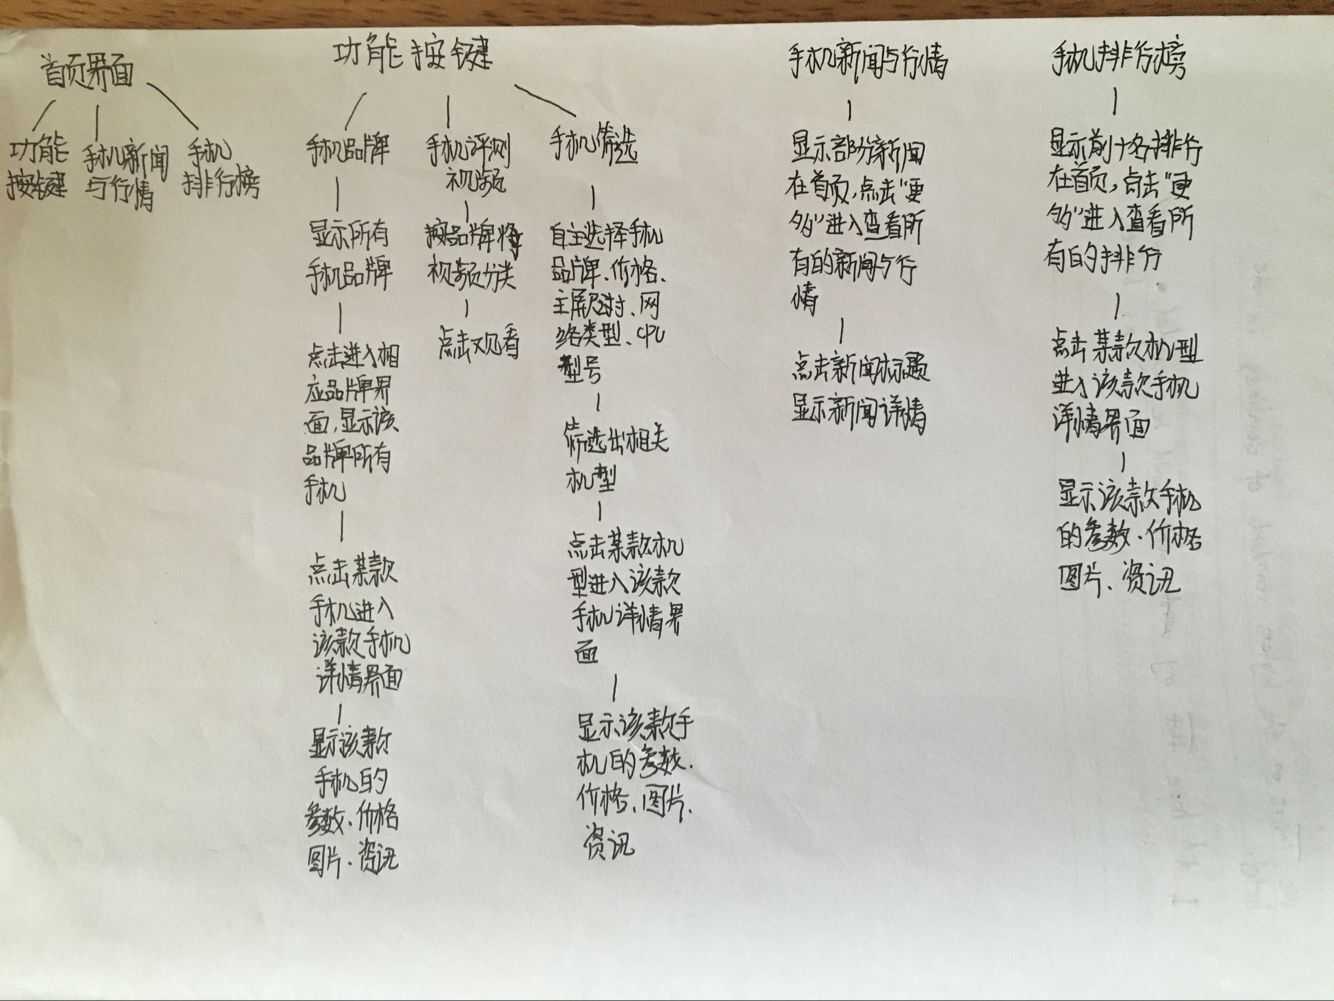 首页界面
功能
按键
手机新闻
与行情
手机
排行榜
功能按键
手机品牌
显示所有
手机品牌
点击进入相
应品牌界
面,显示该
品牌所有
手机
点击某款
手机进入
该款手机
详情界面
显示该款
手机的
参数、价格
图片、资讯
手机评测
视频
按品牌将
视频分类
点击观看
手机筛选
自主选择手机
品牌、价格、
主屏尺寸、网
络类型、CPU
型号
筛选出相关
机型
点击某款机
型进入该款
手机详情界
面
显示该款手
机的参数、
价格、图片、
资讯
手机新闻与行情
显示部分新闻
在首页,点击"更
多"进入查看所
有的新闻与行
情
点击新闻标题
显示新闻详情
手机排行榜
显示前十名排行
在首页,点击"更
多"进入查看所
有的排行
点击某款机型
进入该款手机
详情界面
显示该款手机
的参数、价格
图片、资讯